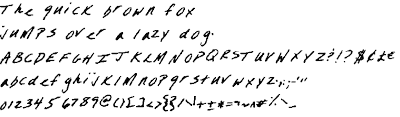 The quick brown fox
jumps over a lazy dog.
ABCDEFGHIJKLMNOPQRSTUVWXYZ?!?$¢£€
abcdefghijklmnopqrstuvwxyz.,:;-'"
0123456789@()[]<>{}/\|+±±=¬~^#%\-_